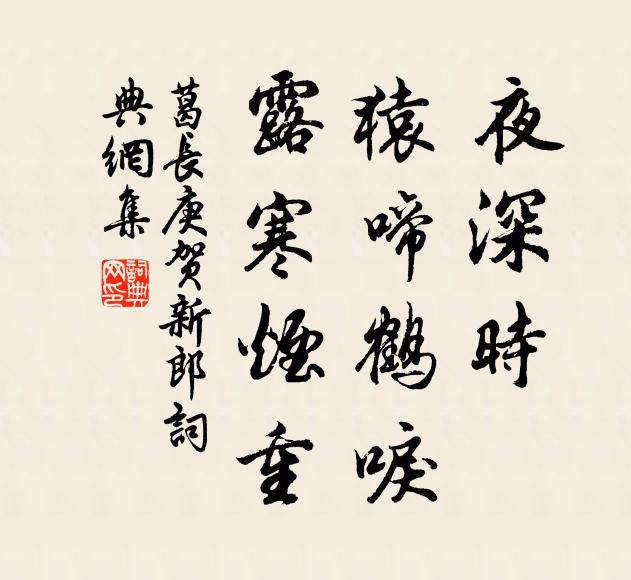 夜深時
猿啼鶴唳
露寒煙重
葛長庚賀新郎詞
典網集
詞典
网印